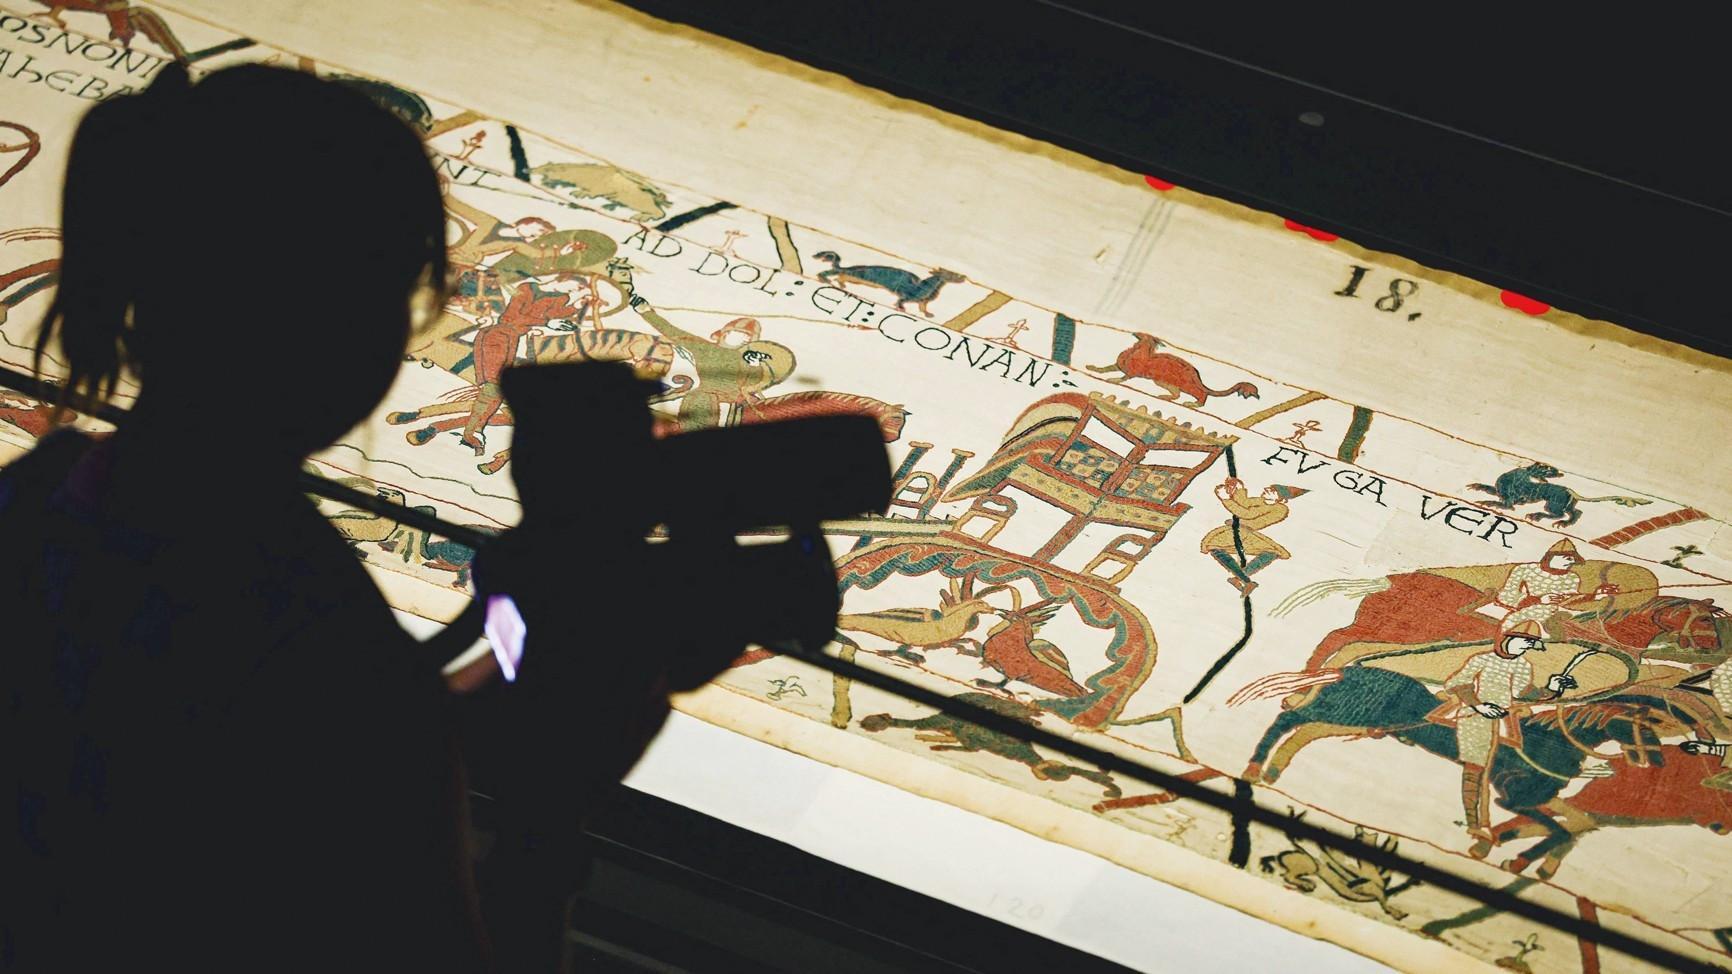 OSNONI
AhEBA
NI
AD DOL: ET: CONAN:
FVGA VER
18.
120